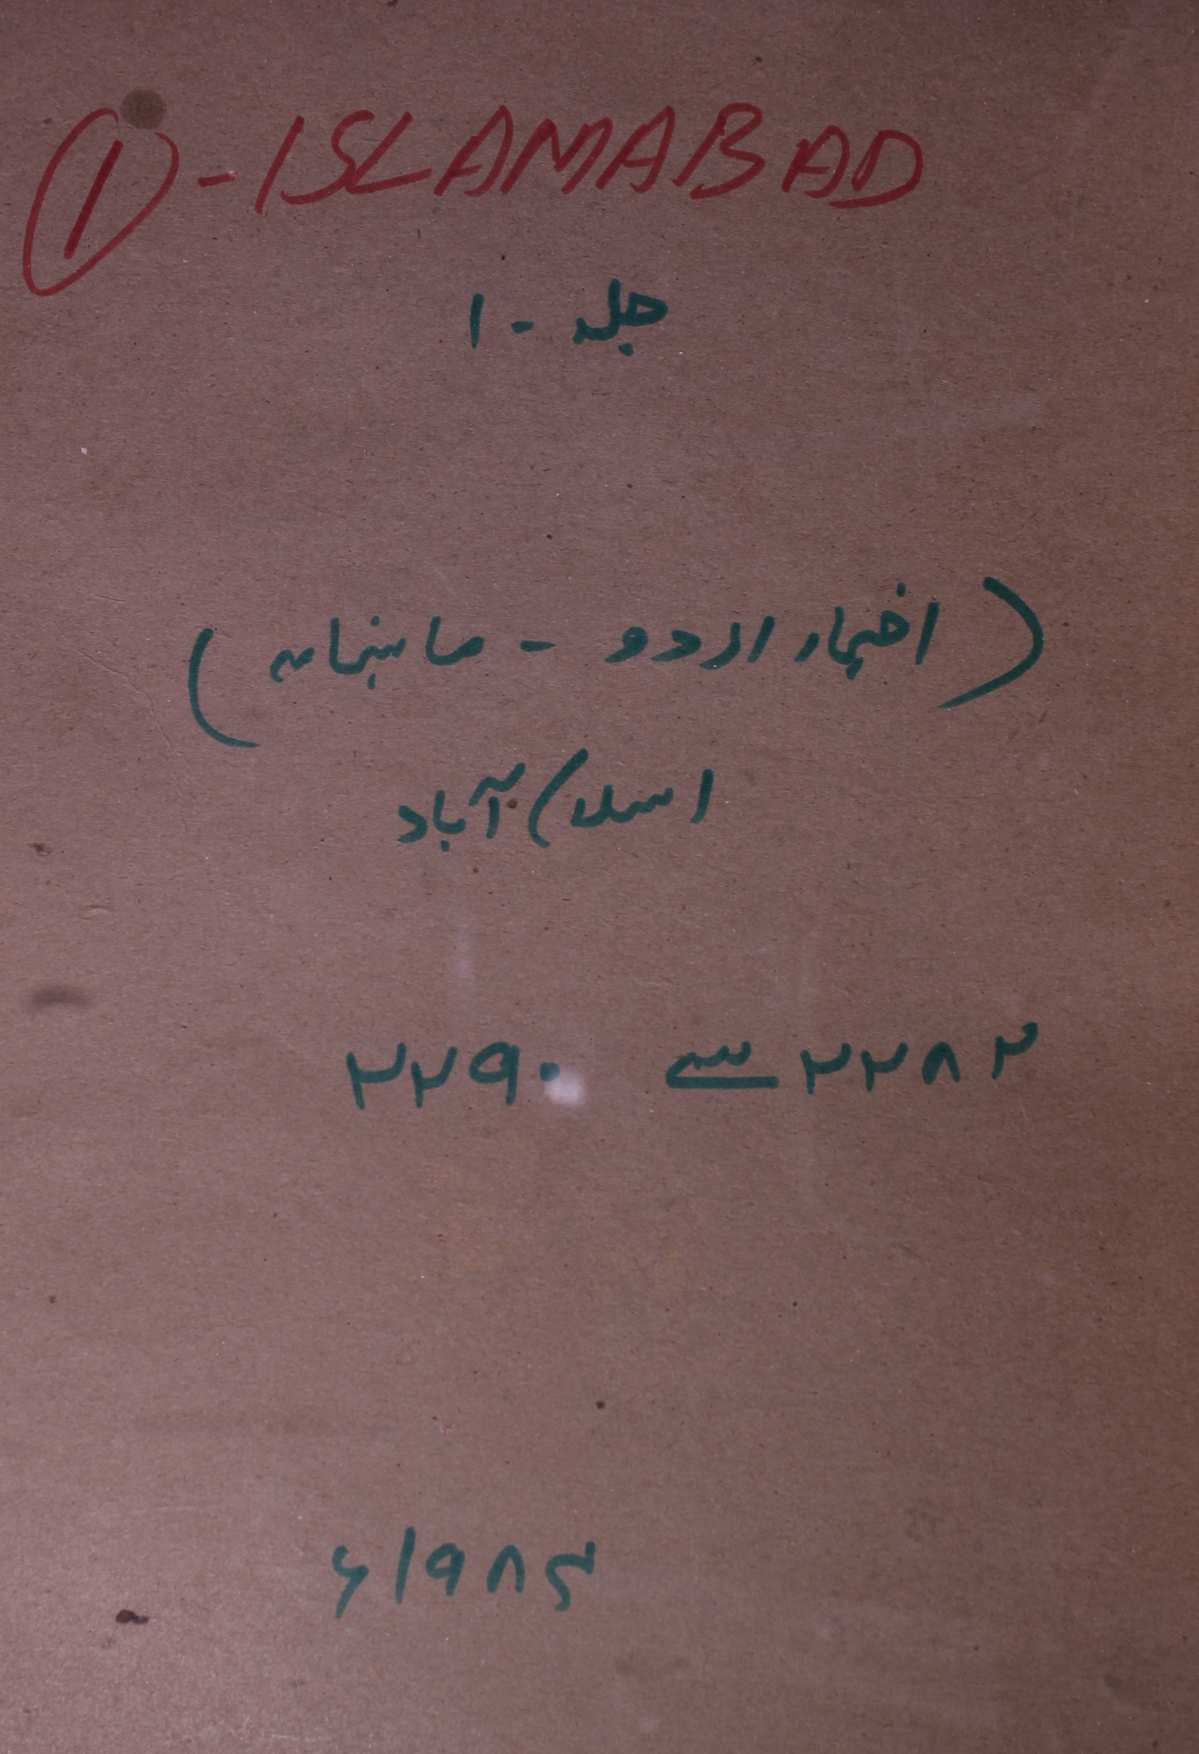 ① - ISLAMABAD
جلد - ۱
(اخبار اردو - ماہنامہ)
اسلام آباد
۲۲۸۲ سے ۲۲۹۰
۱۹۸۴ء